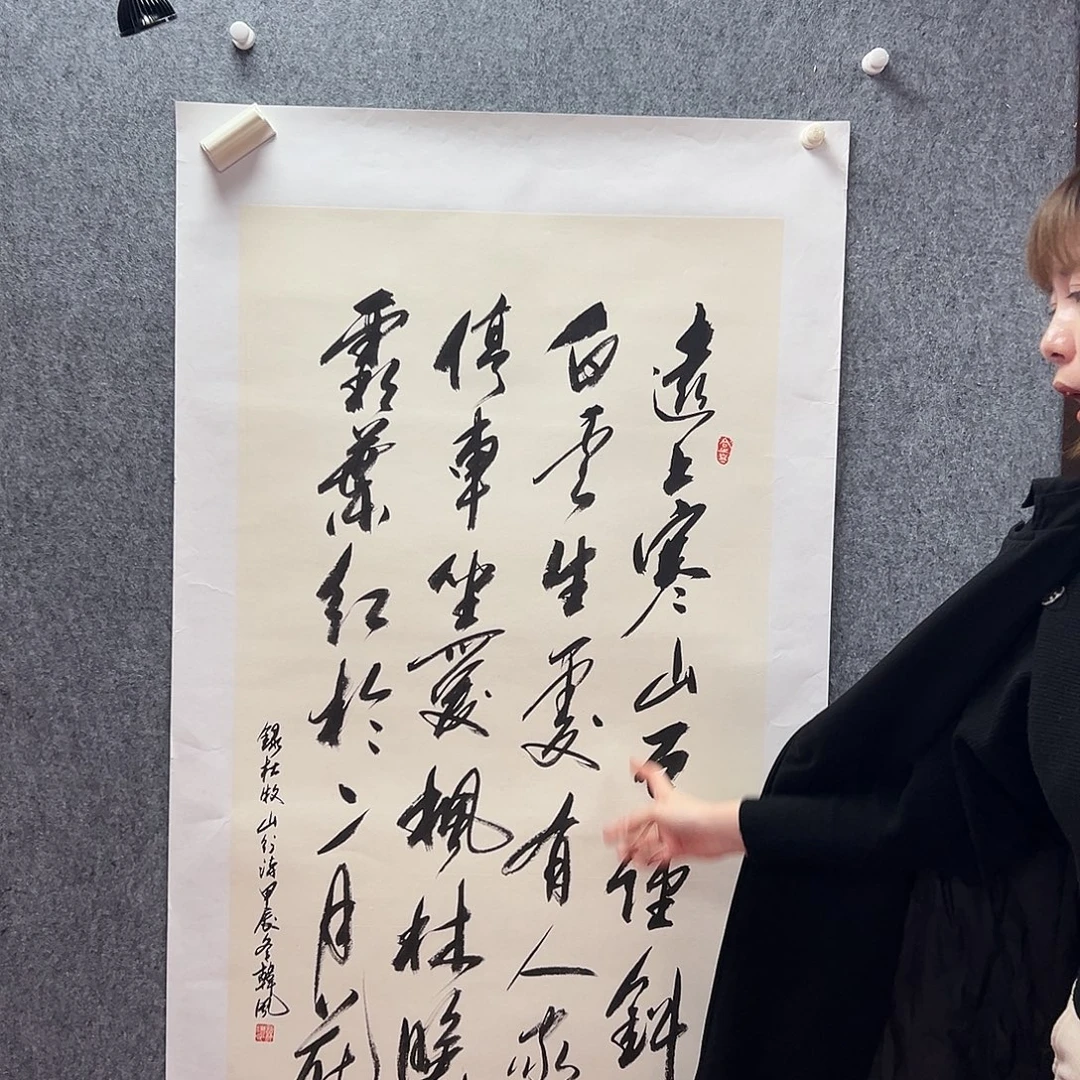 遠上寒山石徑斜
白云生處有人家
停車坐愛楓林晚
霜葉紅於二月花
錄杜牧山行詩甲辰冬韓風